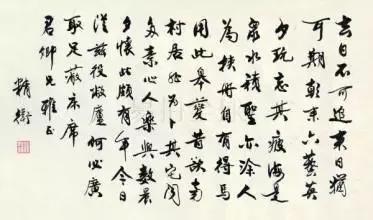 去日不可追來日猶
可期六藝英
少玩忘其疲海是
眾水積聖亦涂人
為挾冊自有得馬
用此變昔欲南
村居非為卜其宅聞
多素心人樂與數晨
夕懷此頗有年今日
從茲役敝廬何必廣
取足蔽床席
君卿兄雅正
精衛